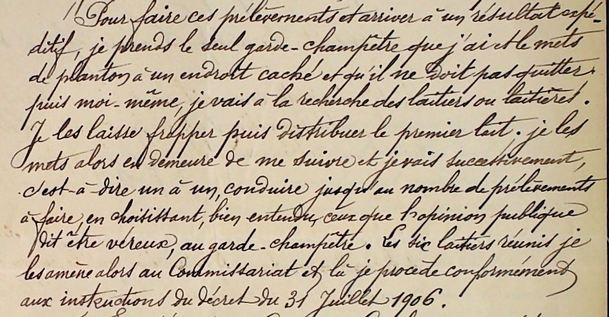 "Pour faire ces prélèvements et arriver à un résultat expé-
ditif, je prends le seul garde-champêtre que j'ai et le mets
de planton à un endroit caché et qu'il ne doit pas quitter
puis moi-même, je vais à la recherche des laitiers ou laitières.
Je les laisse frapper puis distribuer le premier lait. je les
mets alors en demeure de me suivre et je vais successivement,
c'est-à-dire un à un, conduire jusqu'au nombre de prélèvements
à faire, en choisissant, bien entendu, ceux que l'opinion publique
dit être véreux, au garde-champêtre. Les six laitiers réunis je
les amène alors au Commissariat et là je procède conformément
aux instructions du décret du 31 Juillet 1906.